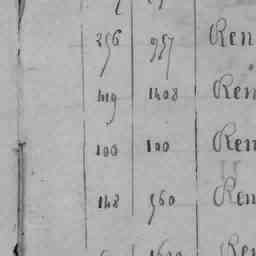 356 957 Ren
119 1408 Ren
100 100 Ren
148 560 Ren
Ren